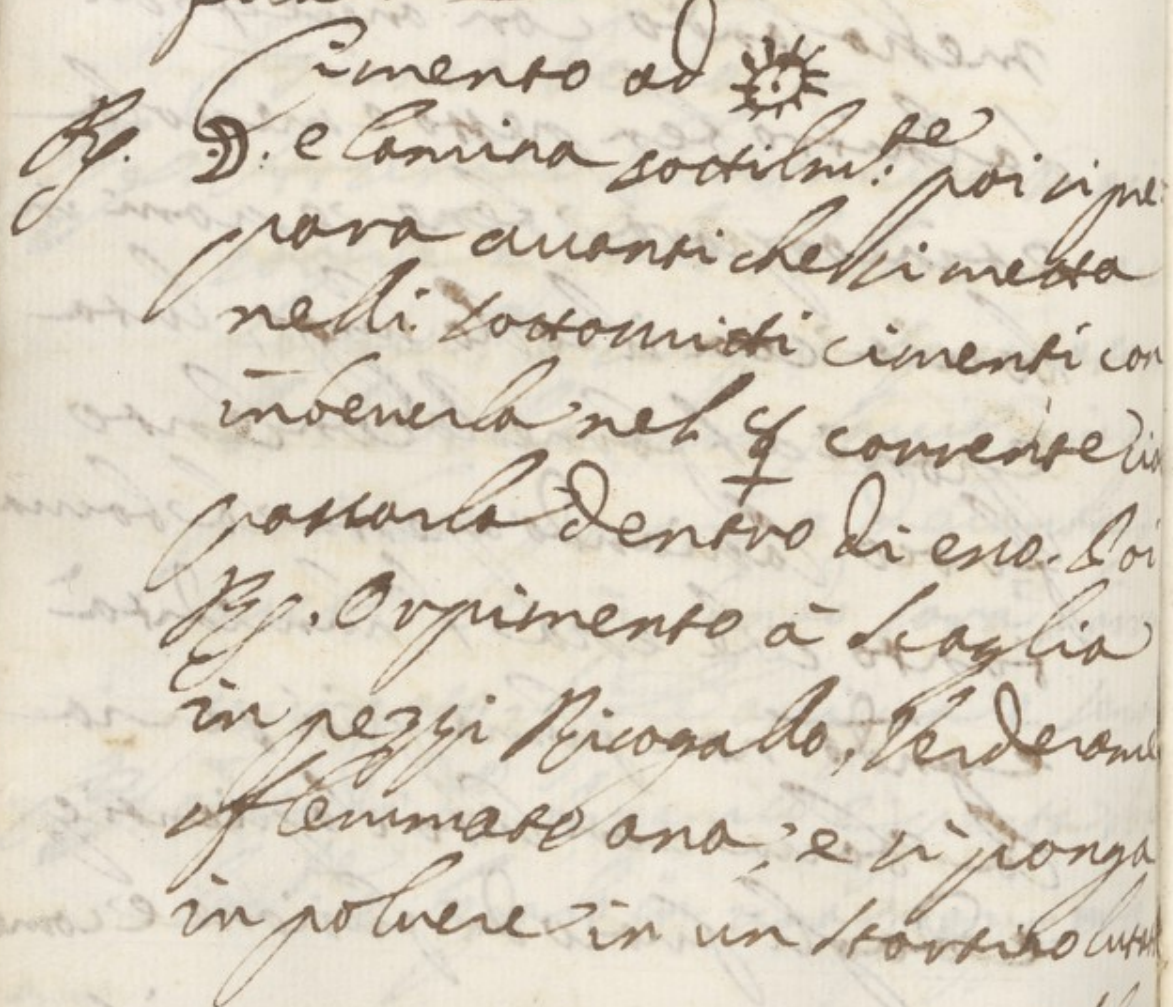 Cimento ad ☉
℞. ☽. e lamina sottilm:te poi si pre
para auanti che si metta
nelli sottoscritti cimenti con
inbeuerla nel ☿ corrente cio
passarla dentro di esso. Poi
℞. Orpimento à scaglia
in pezzi Risogallo, Verderame
ana; e si ponga
in poluere in un stortino lutat